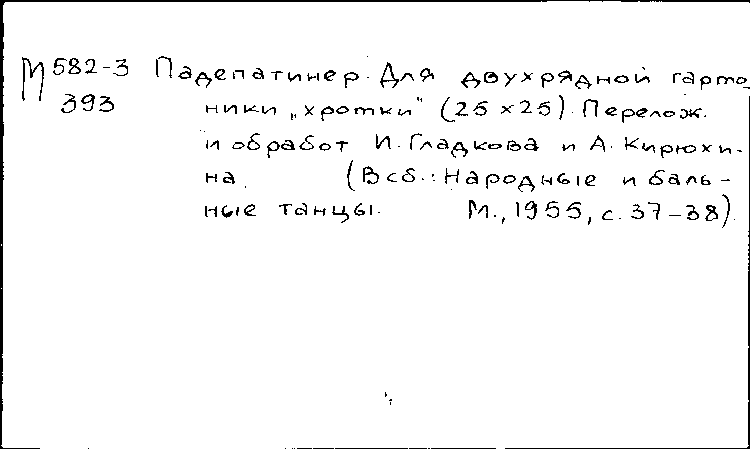 М 582-3 Падепатинер. Для двухрядной гармо
393 ники „хромки" (25 х 25). Перелож.
и обработ И. Гладкова и А. Кирюхи-
на. (В сб.: Народные и баль-
ные танцы. М., 1955, с. 37-38).